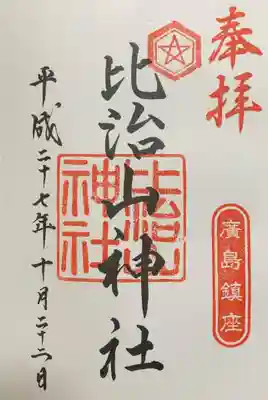 奉拝
廣島鎮座
比治山神社
比治山
神社
平成二十七年十月二十日